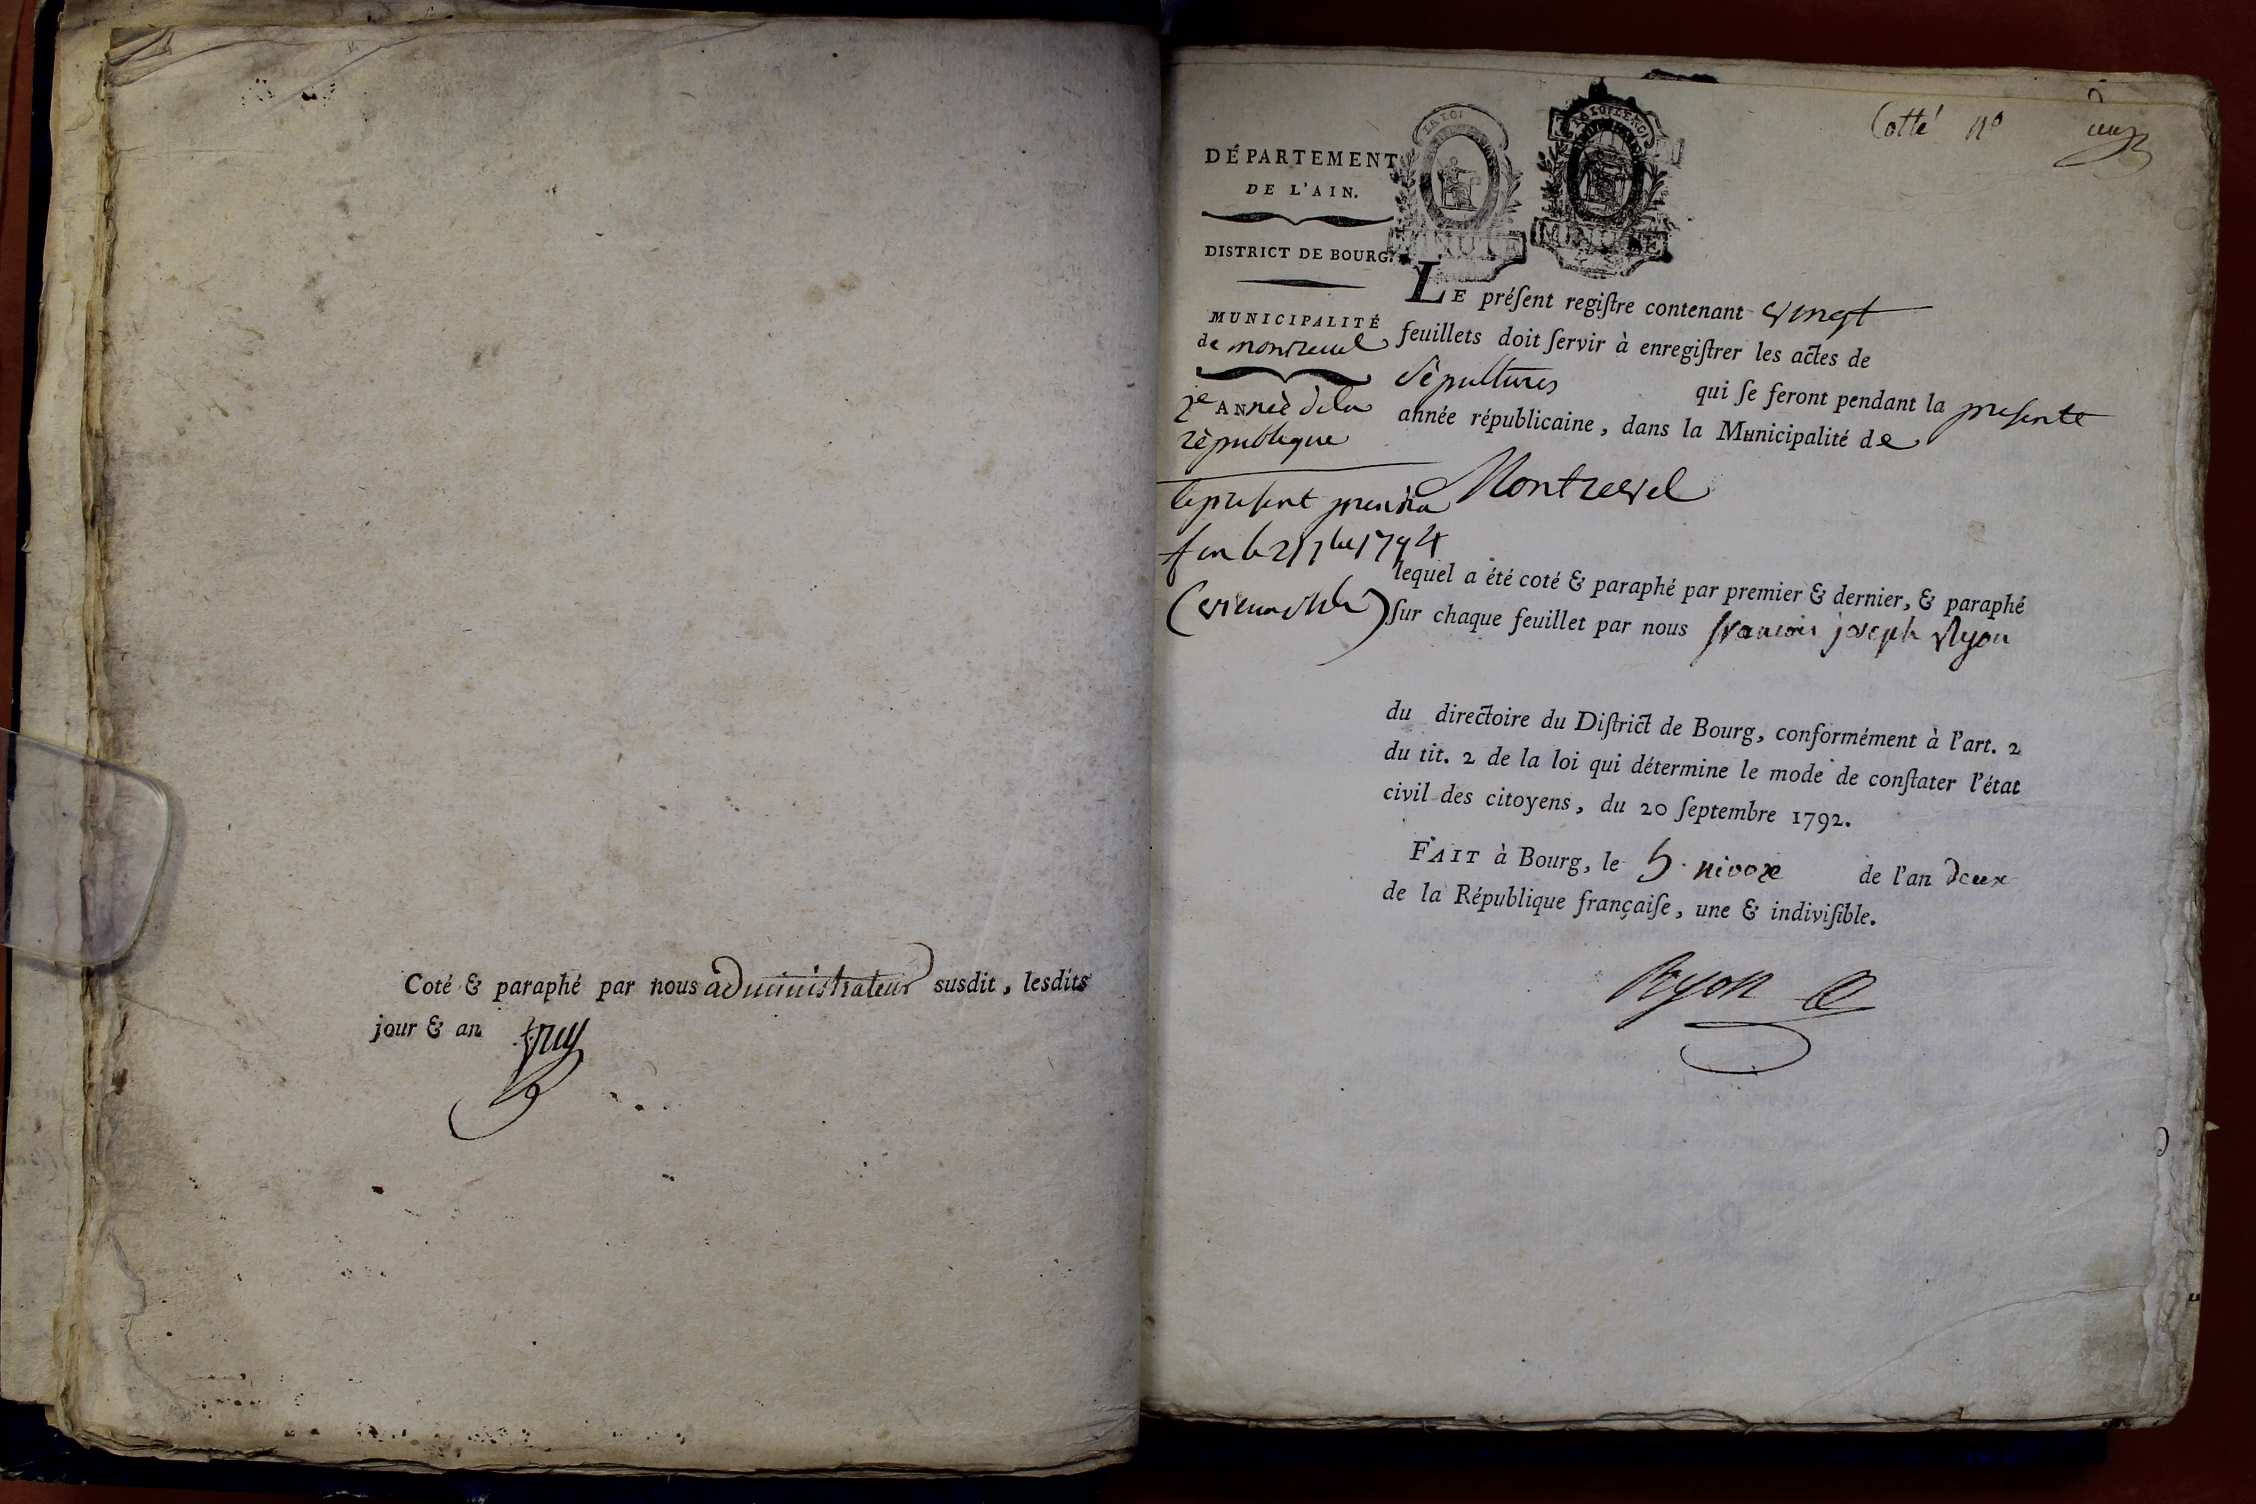 Coté & paraphé par nous administrateur susdit, lesdits
jour & an
Cotté nº un
DÉPARTEMENT
DE L'AIN.
DISTRICT DE BOURG.
MUNICIPALITÉ
de montrevel
2e ANnéè dela
rèpublique
le present prendra
fin le 21 7bre 1794
LA LOI
LA LOI LE ROI
MINUTE
MINUTE
LE préſent regiſtre contenant vingt
feuillets doit ſervir à enregiſtrer les actes de
sèpultures qui ſe feront pendant la presente
année républicaine, dans la Municipalité de
Montrevel
lequel a été coté & paraphé par premier & dernier, & paraphé
ſur chaque feuillet par nous francois joseph Ryon
du directoire du Diſtrict de Bourg, conformément à l'art. 2
du tit. 2 de la loi qui détermine le mode de conſtater l'état
civil des citoyens, du 20 ſeptembre 1792.
FAIT à Bourg, le 5. nivoze de l'an deux
de la République françaiſe, une & indiviſible.
Ryon